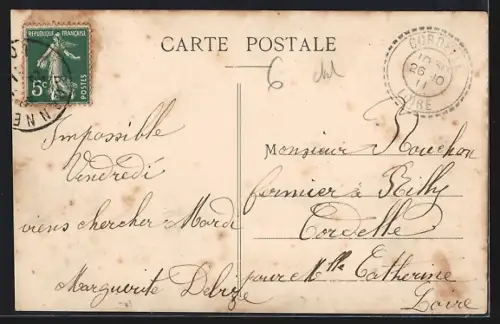 RÉPUBLIQUE FRANÇAISE
5c POSTES
CARTE POSTALE
6
CORDELLE
10
26 - 10
11
LOIRE
Impossible
Vendredi
viens chercher Mardi
Marguerite
Monsieur Rouchon
fermier à Rilly
Cordelle
pour Mlle Catherine
Loire